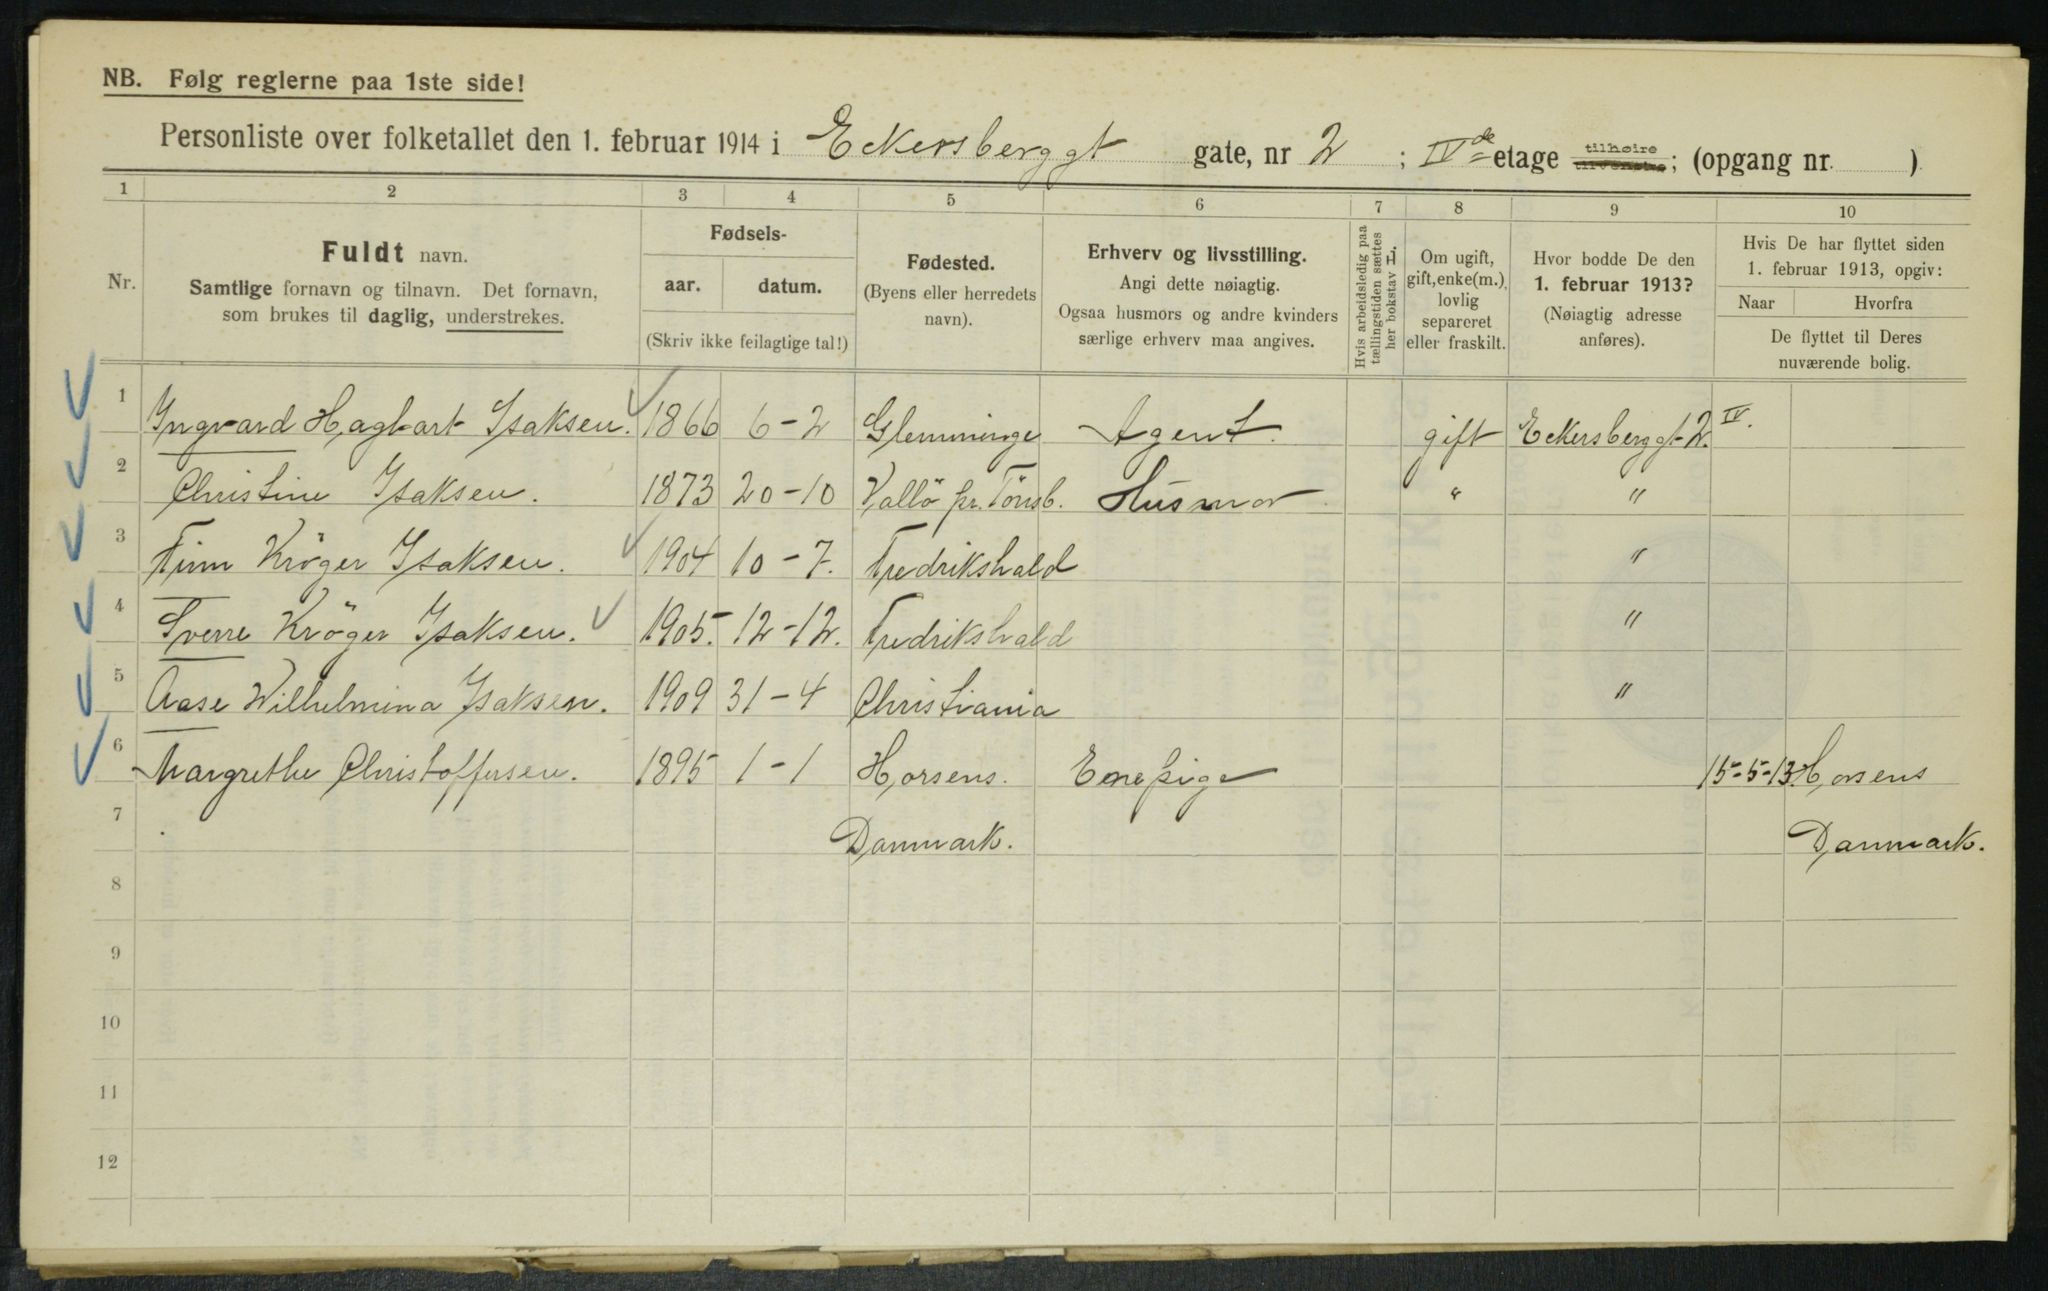 NB. Følg reglerne paa 1ste side!
Personliste over folketallet den 1. februar 1914 i Eckersberggt gate, nr 2 ; IVde etage tilhøire tilvenstre; (opgang nr. )
1 2 3 4 5 6 7 8 9 10
Nr.
Fuldt navn.
Samtlige fornavn og tilnavn. Det fornavn,
som brukes til daglig, understrekes.
Fødsels-
aar. datum.
(Skriv ikke feilagtige tal!)
Fødested.
(Byens eller herredets
navn).
Erhverv og livsstilling.
Angi dette nøiagtig.
Ogsaa husmors og andre kvinders
særlige erhverv maa angives.
Hvis arbeidsledig paa
tællingstiden sættes
her bokstav L.
Om ugift,
gift, enke(m.),
lovlig
separeret
eller fraskilt.
Hvor bodde De den
1. februar 1913?
(Nøiagtig adresse
anføres).
Hvis De har flyttet siden
1. februar 1913, opgiv:
Naar Hvorfra
De flyttet til Deres
nuværende bolig.
1 Ingvard Hagbart Isaksen. 1866 6-2 Glemminge Agent. gift Eckersberggt 2. IV.
2 Christine Isaksen. 1873 20-10 Vallö pr. Tönsb. Husmor " "
3 Finn Kröger Isaksen. 1904 10-7. Fredrikshald "
4 Sverre Kröger Isaksen. 1905. 12-12. Fredrikshald "
5 Aase Wilhelmina Isaksen. 1909 31-4 Christiania "
6 Margrethe Christoffersen. 1895 1-1 Horsens. Enepige 15-5-13. Horsens
7 Danmark. Danmark.
8
9
10
11
12